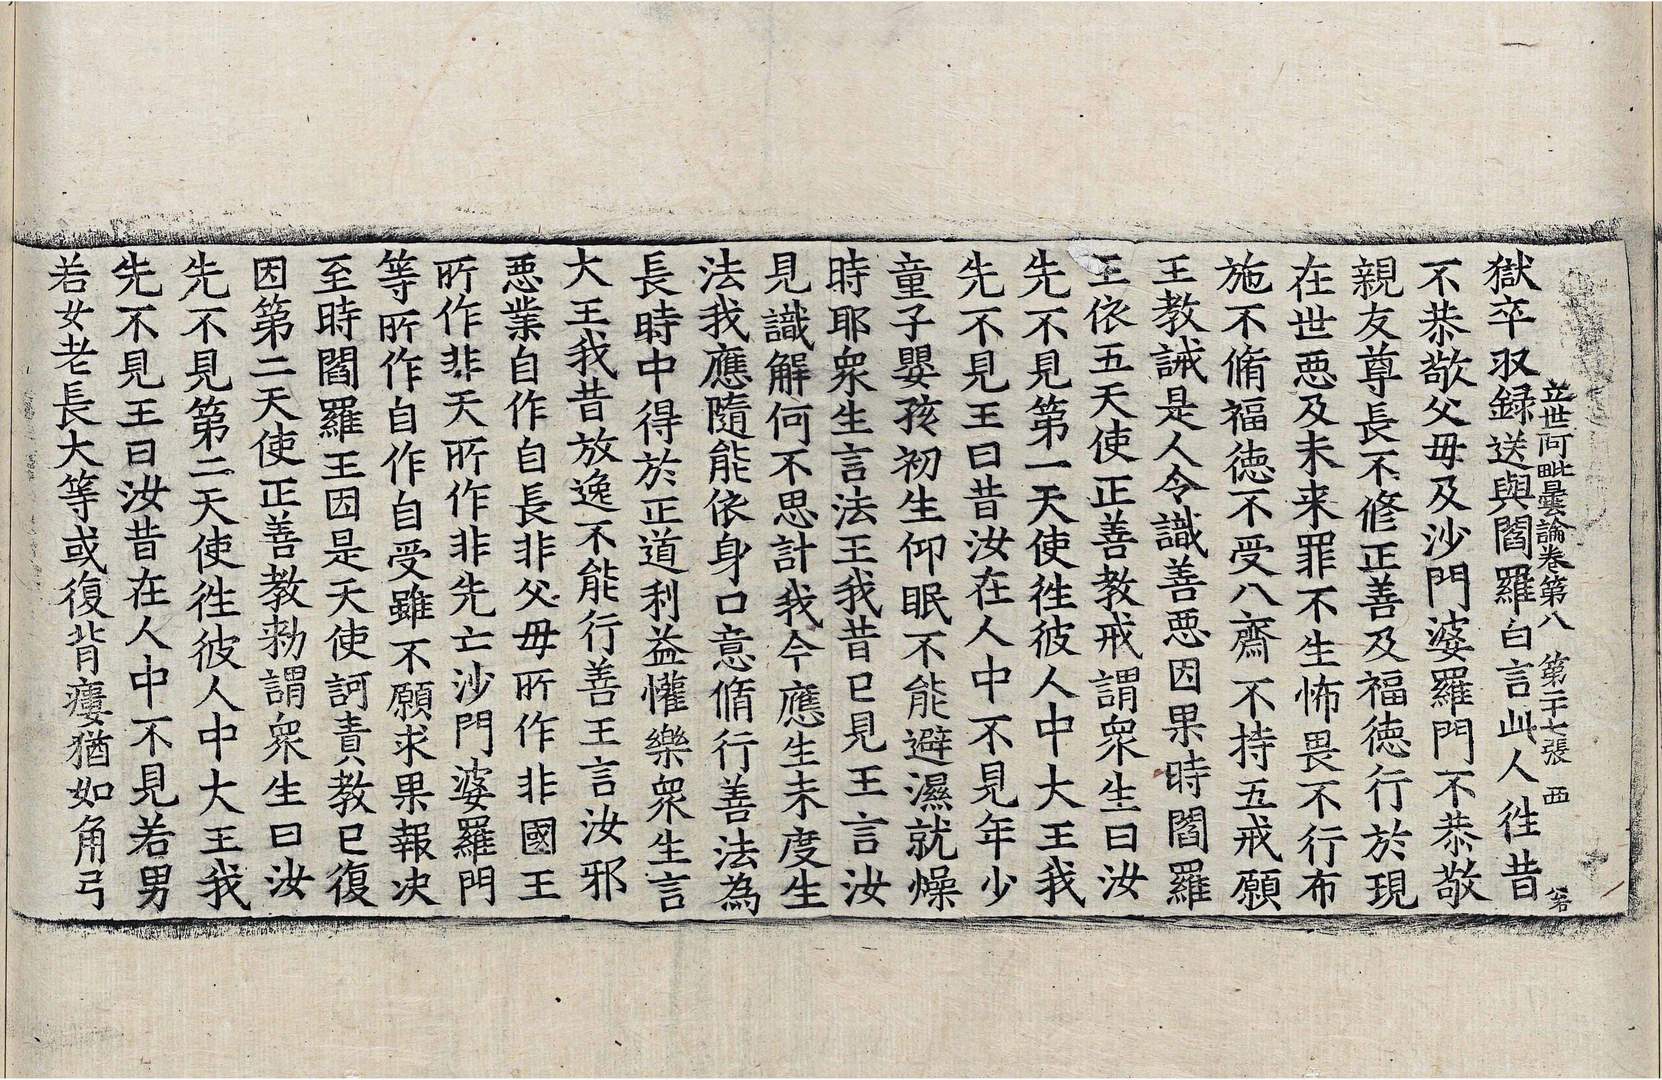 立世阿毗曇論卷第八 第二十七張 西
獄卒収録送與閻羅白言此人徃昔
不恭敬父毋及沙門婆羅門不恭敬
親友尊長不修正善及福徳行於現
在世悪及未来罪不生怖畏不行布
施不脩福徳不受八齋不持五戒願
王教誡是人令識善悪因果時閻羅
王依五天使正善教戒謂衆生曰汝
先不見第一天使徃彼人中大王我
先不見王曰昔汝在人中不見年少
童子嬰孩初生仰眠不能避濕就燥
時耶衆生言法王我昔已見王言汝
見識解何不思計我今應生未度生
法我應隨能依身口意脩行善法為
長時中得於正道利益懽樂衆生言
大王我昔放逸不能行善王言汝邪
悪業自作自長非父毋所作非國王
所作非天所作非先亡沙門婆羅門
等所作自作自受雖不願求果報决
至時閻羅王因是天使訶責教已復
因第二天使正善教勑謂衆生曰汝
先不見第二天使徃彼人中大王我
先不見王曰汝昔在人中不見若男
若女老長大等或復背瘻猶如角弓